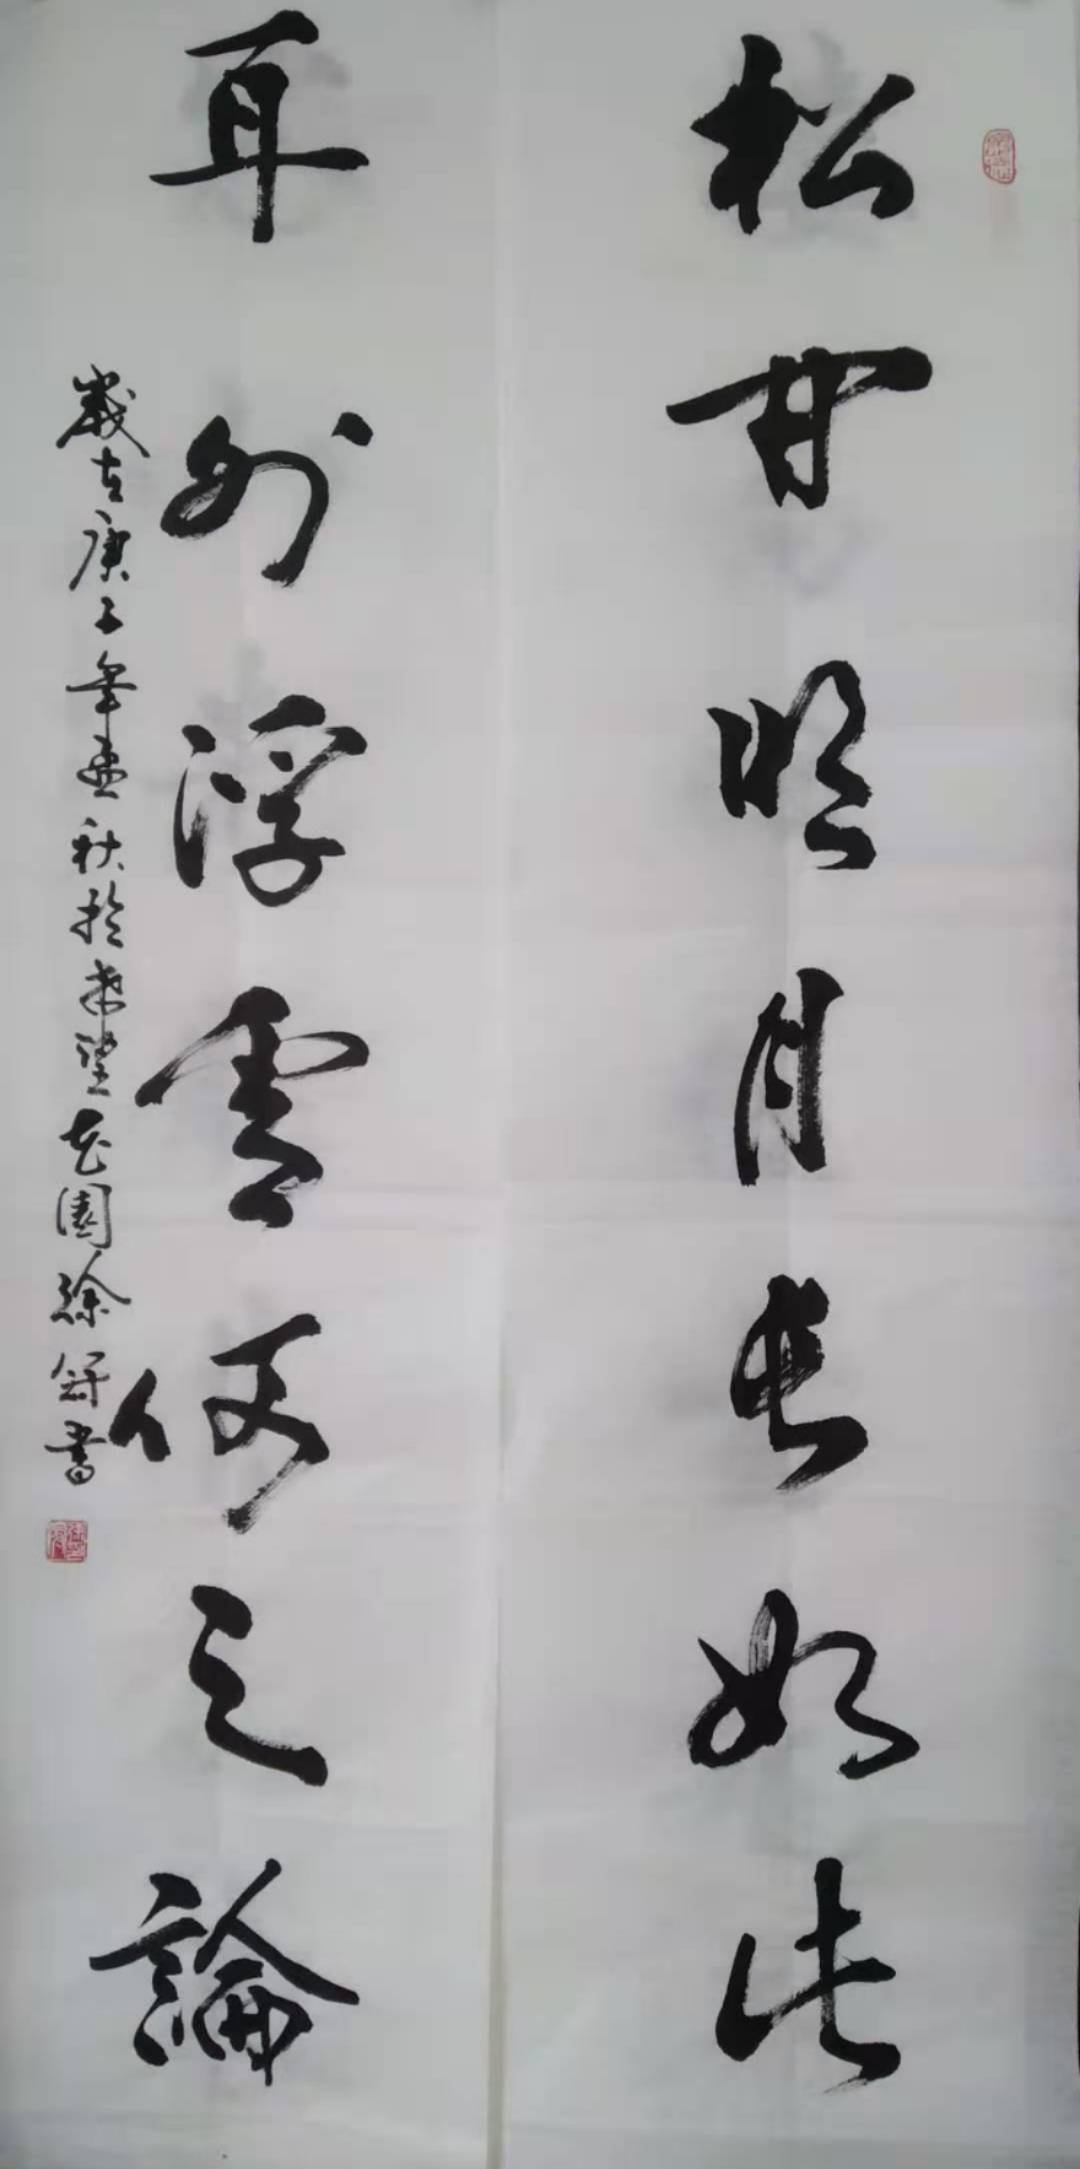 松間明月長如此
耳外浮雲何足論
歲在庚子年孟秋於希望花園徐舒書